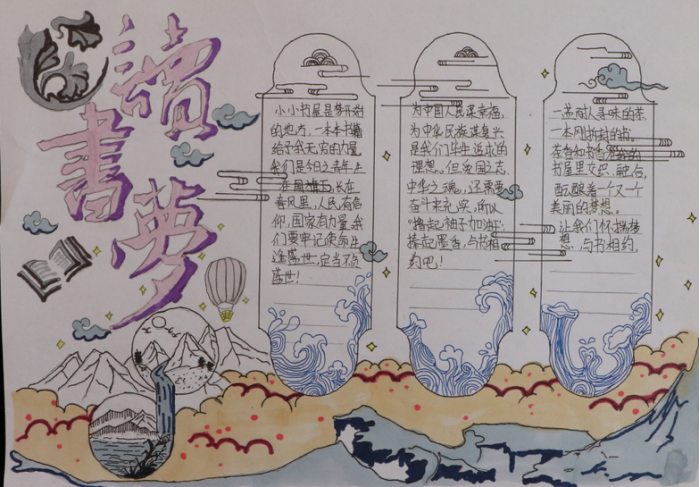 讀書夢
小小书屋是梦开始
的地方，一本本书籍
给予我无穷的力量
我们是今日之青年生
在国旗下，长在
春风里，人民有信
仰，国家有力量，我
们要牢记使命生
逢盛世，定当不负
盛世！
为中国人民谋幸福，
为中华民族谋复兴
是我们毕生追求的
理想。但爱国之志
中华之魂，还需要
奋斗来充实，所以
"撸起袖子加油干
捧起墨香，与书相
约吧！
一盏耐人寻味的茶
一本刚拆封的书。
茶香和书香
书屋里交织，融合，
酝酿着一个又一个
美丽的梦想。
让我们怀揣梦
想，与书相约，